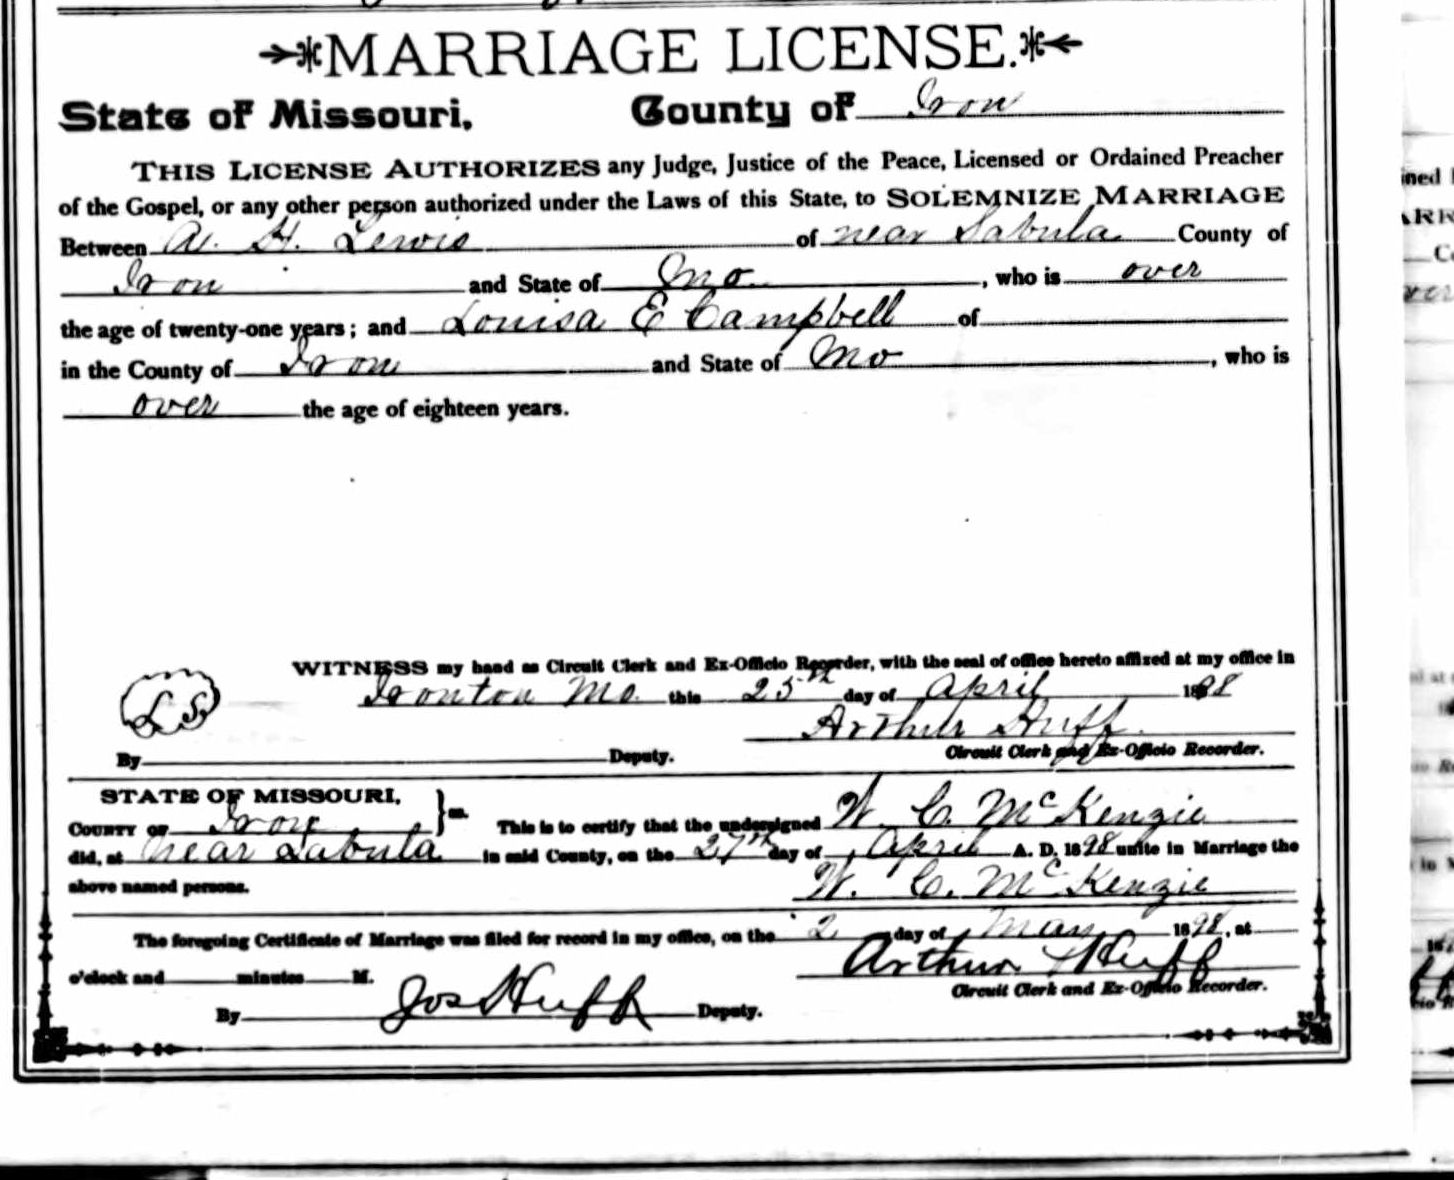 MARRIAGE LICENSE.
State of Missouri, County of Iron
THIS LICENSE AUTHORIZES any Judge, Justice of the Peace, Licensed or Ordained Preacher
of the Gospel, or any other person authorized under the Laws of this State, to SOLEMNIZE MARRIAGE
Between H. Lewis of near Sabula County of
Iron and State of Mo , who is over
the age of twenty-one years; and Louisa E Campbell of
in the County of Iron and State of Mo , who is
over the age of eighteen years.
WITNESS my hand as Circuit Clerk and Ex-Officio Recorder, with the seal of office hereto affixed at my office in
L S
Ironton Mo. this 25th day of April 1898
Arthur Huff
By Deputy. Circuit Clerk and Ex-Officio Recorder.
STATE OF MISSOURI,
COUNTY OF Iron } ss. This is to certify that the undersigned W. C. McKenzie
did, at near Sabula in said County, on the 27th day of April A. D. 1898 unite in Marriage the
above named persons. W. C. McKenzie
The foregoing Certificate of Marriage was filed for record in my office, on the 2 day of May 1898, at
o'clock and minutes M. Arthur Huff
Circuit Clerk and Ex-Officio Recorder.
By Jos Huff Deputy.